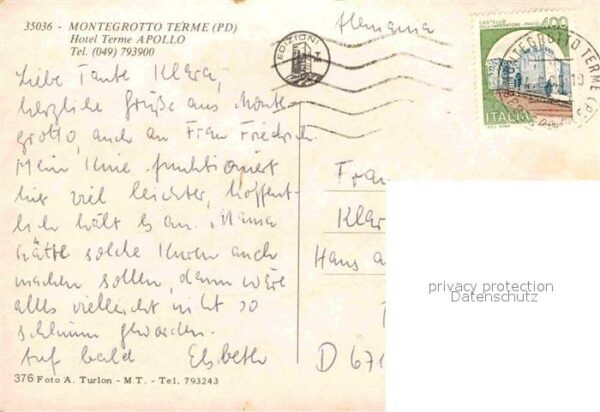 35036 - MONTEGROTTO TERME (PD)
Hotel Terme APOLLO
Tel. (049) 793900
Alemania
EDIZIONI
CASTELLO
DELL'IMPERATORE - PRATO
400
ITALIA
MONTEGROTTO TERME (PD)
Liebe Tante Klara,
herzliche Grüße aus Monte-
grotto, auch an Frau Friedrich.
Mein Knie funktioniert
hier viel leichter, hoffent-
lich hält es an. Mama
hätte solche Kuren auch
machen sollen, dann wäre
alles vielleicht nicht so
schlimm geworden.
Auf bald Elsbeth
Frau
Klar
Hans a
D 671
privacy protection
Datenschutz
376 Foto A. Turlon - M.T. - Tel. 793243